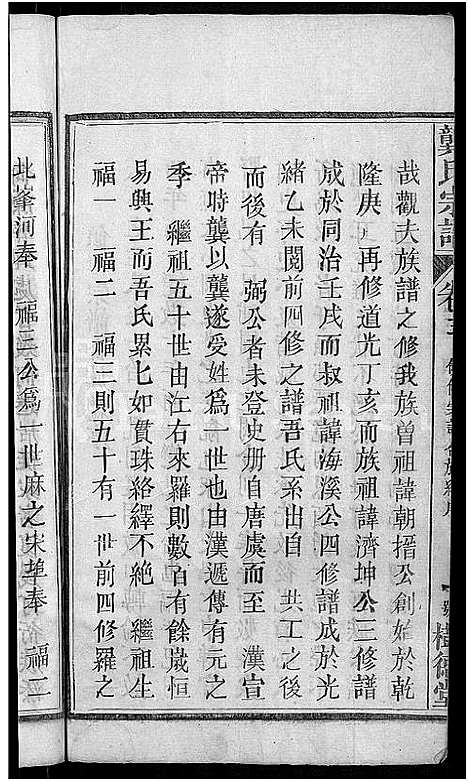 龔氏宗譜
卷三
樹德堂
哉觀夫族譜之修我族曾祖諱朝搢公創始於乾
隆庚戌再修道光丁亥而族祖諱濟坤公三修譜
成於同治壬戌而叔祖諱海溪公四修譜成於光
緒乙未閱前四修之譜吾氏系出自 共工之後
而後有 弼公者未登史册自唐虞而後至 漢宣
帝時龔以龔遂爰姓爲一世也由漢遞傳有元之
季 繼祖五十世由江右來羅則數百有餘嵗恒
易興王而吾氏累七如貫珠絡繹不絶 繼祖生
福一 福二 福三則五十有一世前四修羅之
北峯河奉 福三公爲一世麻之宋埠奉 福二